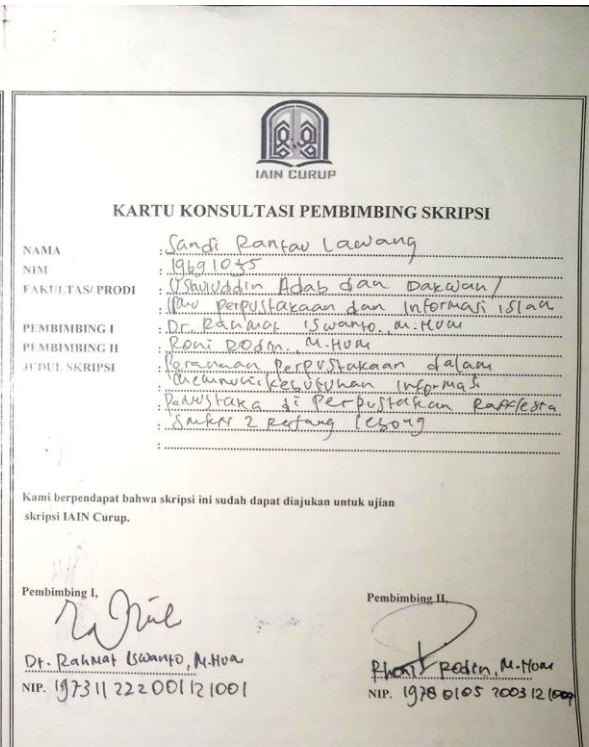 IAIN CURUP
KARTU KONSULTASI PEMBIMBING SKRIPSI
NAMA : Sandi Rantau Lawang
NIM : 19691035
FAKULTAS/ PRODI : Ushuluddin Adab dan Dakwah /
: Ilmu Perpustakaan dan Informasi islam
PEMBIMBING I : Dr. Rahmat Iswanto, M.Hum
PEMBIMBING II : Roni Rodin, M.Hum
JUDUL SKRIPSI : Peranan Perpustakaan dalam
: memenuhi kebutuhan informasi
: Pemustaka di Perpustakan Rafflesia
: Smkn 2 Rejang lebong
:
Kami berpendapat bahwa skripsi ini sudah dapat diajukan untuk ujian
skripsi IAIN Curup.
Pembimbing I, Pembimbing II,
Dr. Rahmat Iswanto, M.Hum Rhoni Rodin, M.Hum
NIP. 197311222001121001 NIP. 19780105 200312